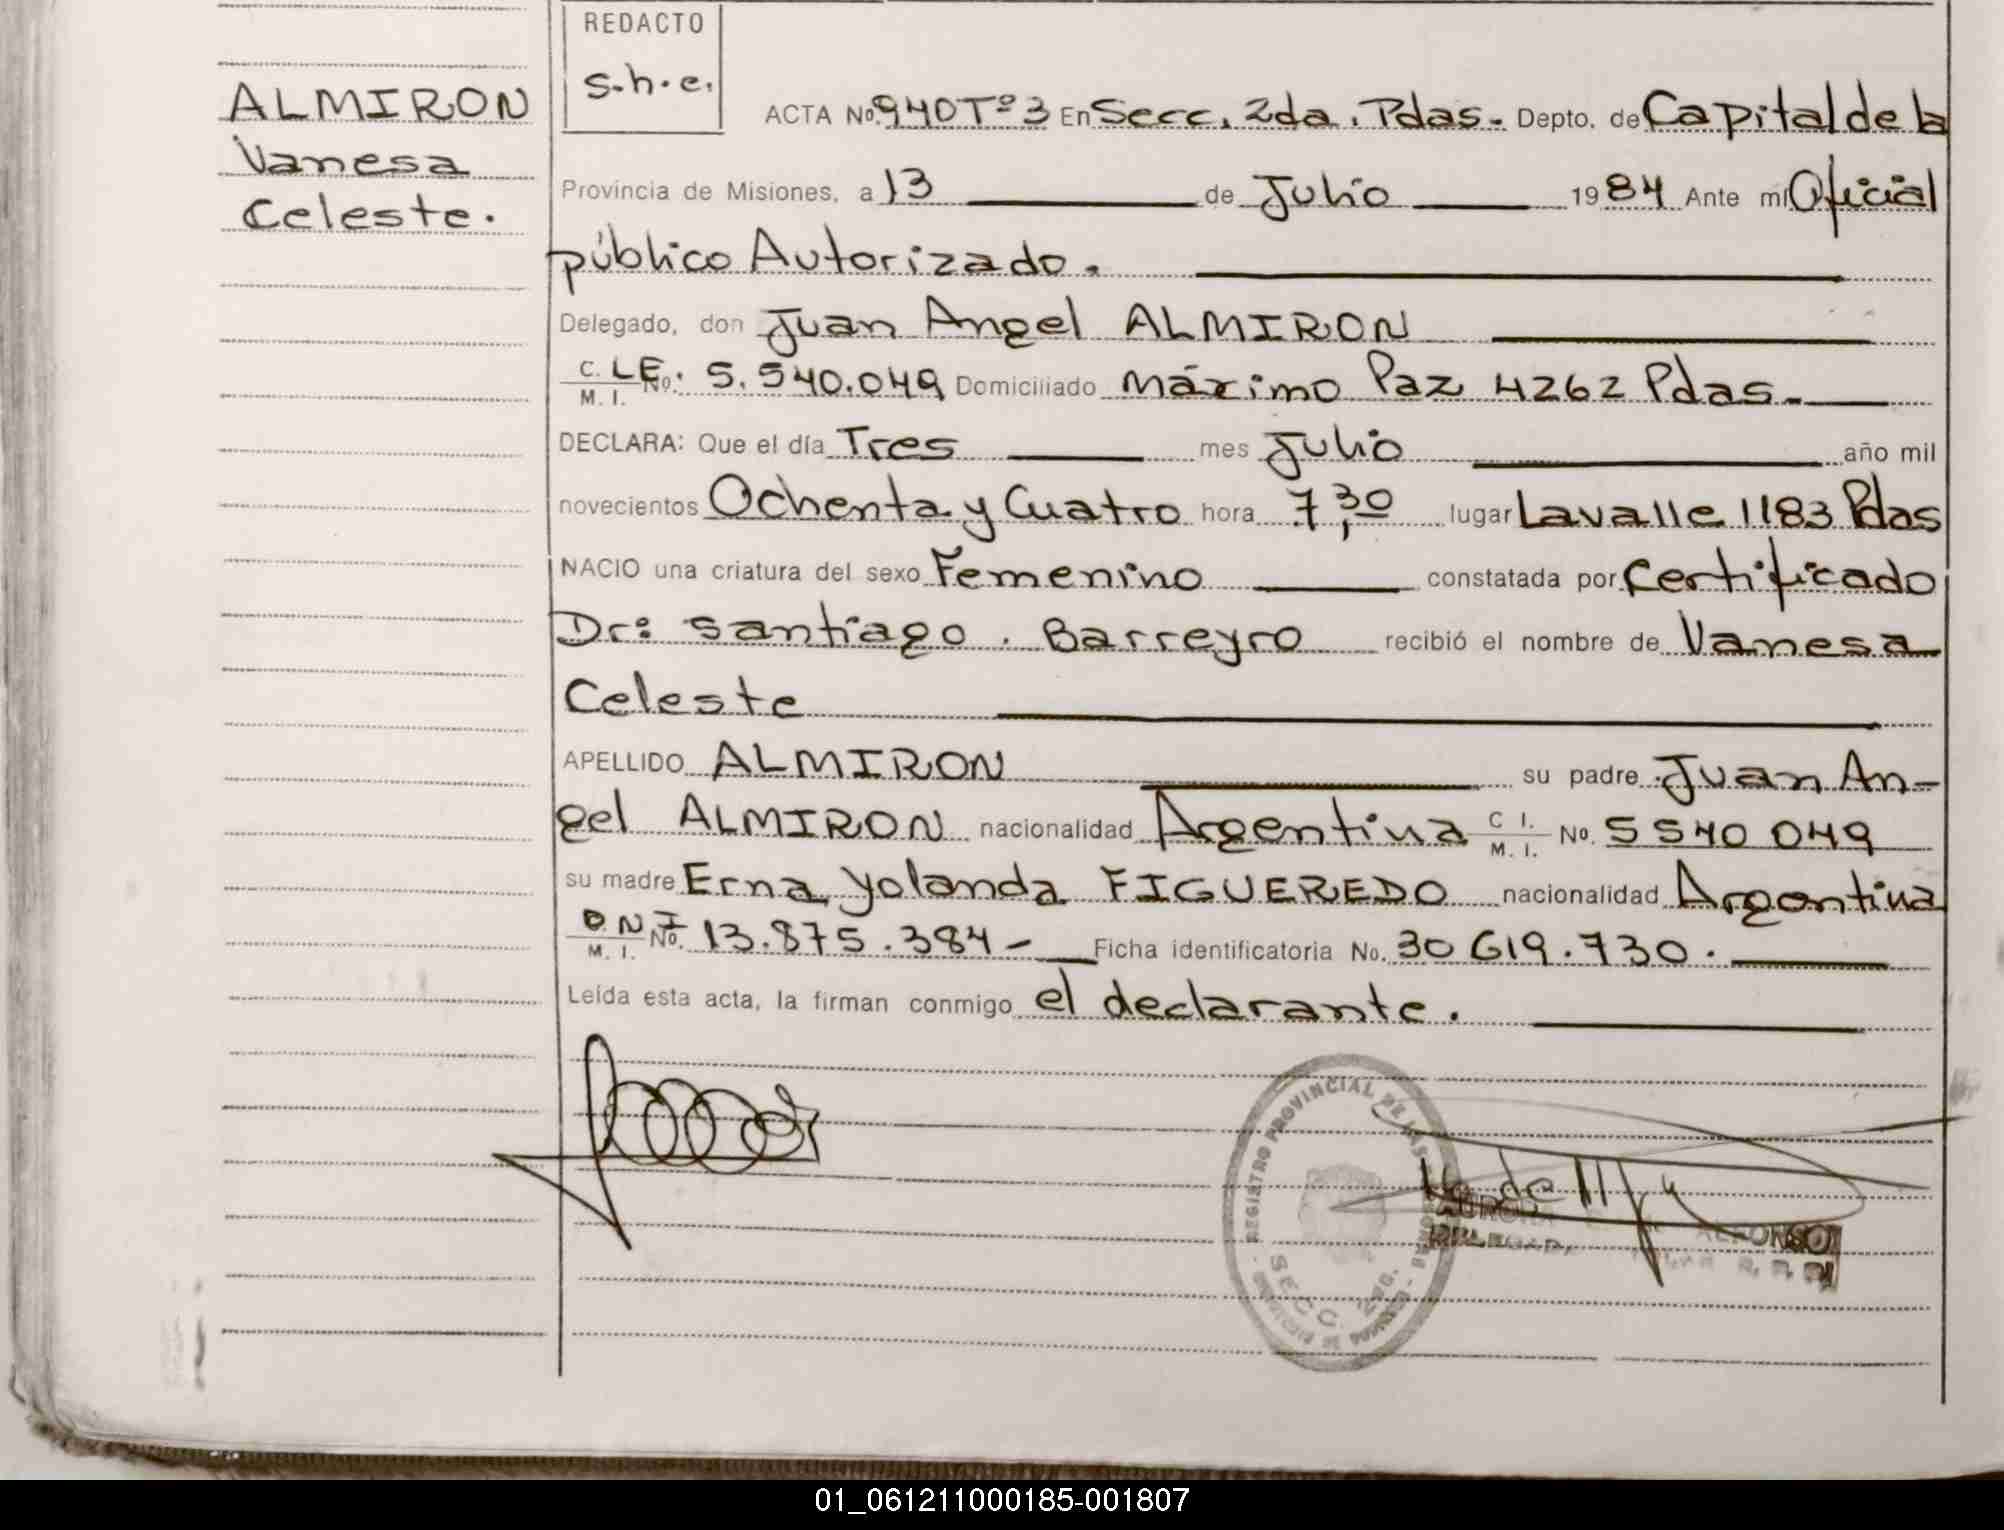 REDACTO
s.h.e.
ALMIRON
Vanesa
Celeste.
ACTA No. 940 Tº 3 En Secc. 2da. Pdas. Depto. de Capital de la
Provincia de Misiones, a 13 de Julio 1984 Ante mí Oficial
público Autorizado.
Delegado, don Juan Angel ALMIRON
C. LE. No. M. I. 5.540.049 Domiciliado Máximo Paz 4262 Pdas.
DECLARA: Que el día Tres mes Julio año mil
novecientos Ochenta y Cuatro hora 7,30 lugar Lavalle 1183 Pdas
NACIO una criatura del sexo Femenino constatada por Certificado
Dr: Santiago. Barreyro recibió el nombre de Vanesa
Celeste
APELLIDO ALMIRON su padre Juan An-
gel ALMIRON nacionalidad Argentina C I. M. I. No. 5540 049
su madre Erna Yolanda FIGUEREDO nacionalidad Argentina
D.N.I M. I. No. 13.875.384- Ficha identificatoria No. 30 619.730.
Leída esta acta, la firman conmigo el declarante.
REGISTRO PROVINCIAL DE LAS PERSONAS
SECC. 2da.
ALFONSO
01_061211000185-001807